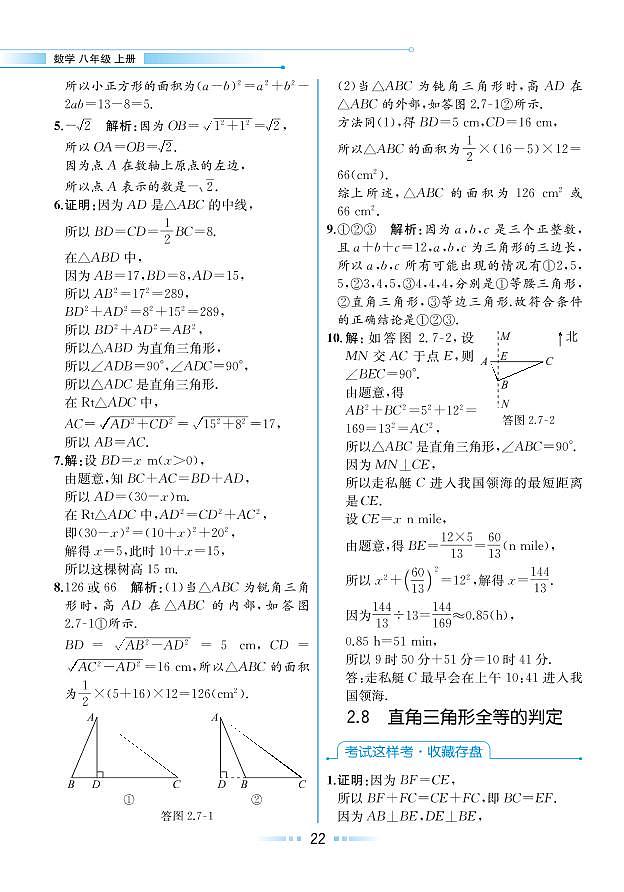 数学 八年级 上册
所以小正方形的面积为(a－b)²＝a²＋b²－
2ab＝13－8＝5.
5.－√2 解析:因为OB＝√1²＋1²＝√2,
所以OA＝OB＝√2.
因为点A在数轴上原点的左边,
所以点A表示的数是－√2.
6.证明:因为AD是△ABC的中线,
所以BD＝CD＝1/2BC＝8.
在△ABD中,
因为AB＝17,BD＝8,AD＝15,
所以AB²＝17²＝289,
BD²＋AD²＝8²＋15²＝289,
所以BD²＋AD²＝AB²,
所以△ABD为直角三角形,
所以∠ADB＝90°,∠ADC＝90°,
所以△ADC是直角三角形.
在Rt△ADC中,
AC＝√AD²＋CD²＝√15²＋8²＝17,
所以AB＝AC.
7.解:设BD＝x m(x＞0),
由题意,知BC＋AC＝BD＋AD,
所以AD＝(30－x)m.
在Rt△ADC中,AD²＝CD²＋AC²,
即(30－x)²＝(10＋x)²＋20²,
解得x＝5,此时10＋x＝15,
所以这棵树高15 m.
8.126或66 解析:(1)当△ABC为锐角三角
形时,高AD在△ABC的内部,如答图
2.7-1①所示.
BD＝√AB²－AD²＝5 cm,CD＝
√AC²－AD²＝16 cm,所以△ABC的面积
为1/2×(5＋16)×12＝126(cm²).
A
B D C
①
A
D B C
②
答图2.7-1
(2)当△ABC为钝角三角形时,高AD在
△ABC的外部,如答图2.7-1②所示.
方法同(1),得BD＝5 cm,CD＝16 cm,
所以△ABC的面积为1/2×(16－5)×12＝
66(cm²).
综上所述,△ABC的面积为126 cm²或
66 cm².
9.①②③ 解析:因为a,b,c是三个正整数,
且a＋b＋c＝12,a,b,c为三角形的三边长,
所以a,b,c所有可能出现的情况有①2,5,
5,②3,4,5,③4,4,4,分别是①等腰三角形,
②直角三角形,③等边三角形.故符合条件
的正确结论是①②③.
10.解:如答图2.7-2,设
MN交AC于点E,则
∠BEC＝90°.
由题意,得
AB²＋BC²＝5²＋12²＝
169＝13²＝AC²,
M
北
A E C
B
N
答图2.7-2
所以△ABC是直角三角形,∠ABC＝90°.
因为MN⊥CE,
所以走私艇C进入我国领海的最短距离
是CE.
设CE＝x n mile,
由题意,得BE＝12×5/13＝60/13(n mile),
所以x²＋(60/13)²＝12²,解得x＝144/13.
因为144/13÷13＝144/169≈0.85(h),
0.85 h＝51 min,
所以9时50分＋51分＝10时41分.
答:走私艇C最早会在上午10:41进入我
国领海.
2.8 直角三角形全等的判定
考试这样考·收藏存盘
1.证明:因为BF＝CE,
所以BF＋FC＝CE＋FC,即BC＝EF.
因为AB⊥BE,DE⊥BE,
22